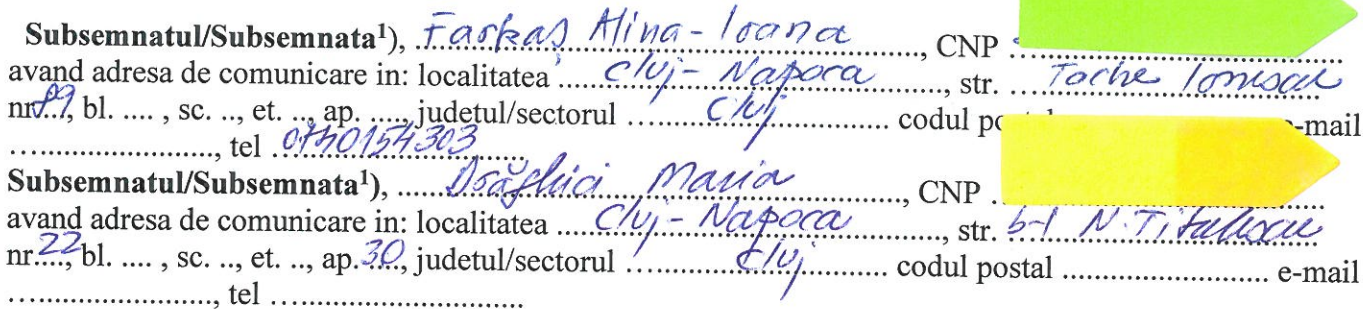 Subsemnatul/Subsemnata¹), Farkaș Alina-Ioana, CNP
avand adresa de comunicare in: localitatea Cluj-Napoca, str. Tache Ionescu
nr. 89, bl. .... , sc. .., et. .., ap. ...., judetul/sectorul Cluj codul po e-mail
......................, tel 0740154303
Subsemnatul/Subsemnata¹), Drăghici Maria, CNP
avand adresa de comunicare in: localitatea Cluj-Napoca, str. b-l N. Titulescu
nr. 22, bl. .... , sc. .., et. .., ap. 30, judetul/sectorul Cluj codul postal ...................... e-mail
......................, tel ...........................